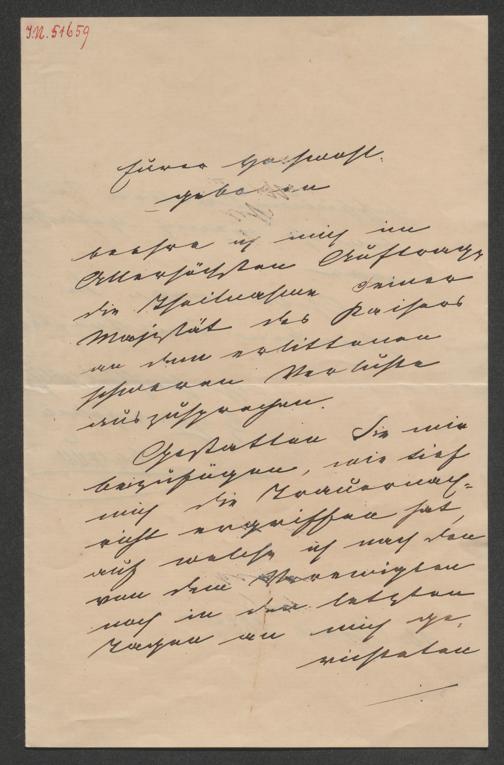 I.N. 51659
Eurer Hochwohl-
geboren
beehre ich mich im
Allerhöchsten Auftrage
die Theilnahme Seiner
Majestät des Kaisers
an dem erlittenen
schweren Verluste
auszusprechen.
Gestatten Sie mir
beizufügen, wie tief
mich die Trauernach-
richt ergriffen hat,
auf welche ich nach den
von dem Verewigten
noch in den letzten
Tagen an mich ge-
richteten